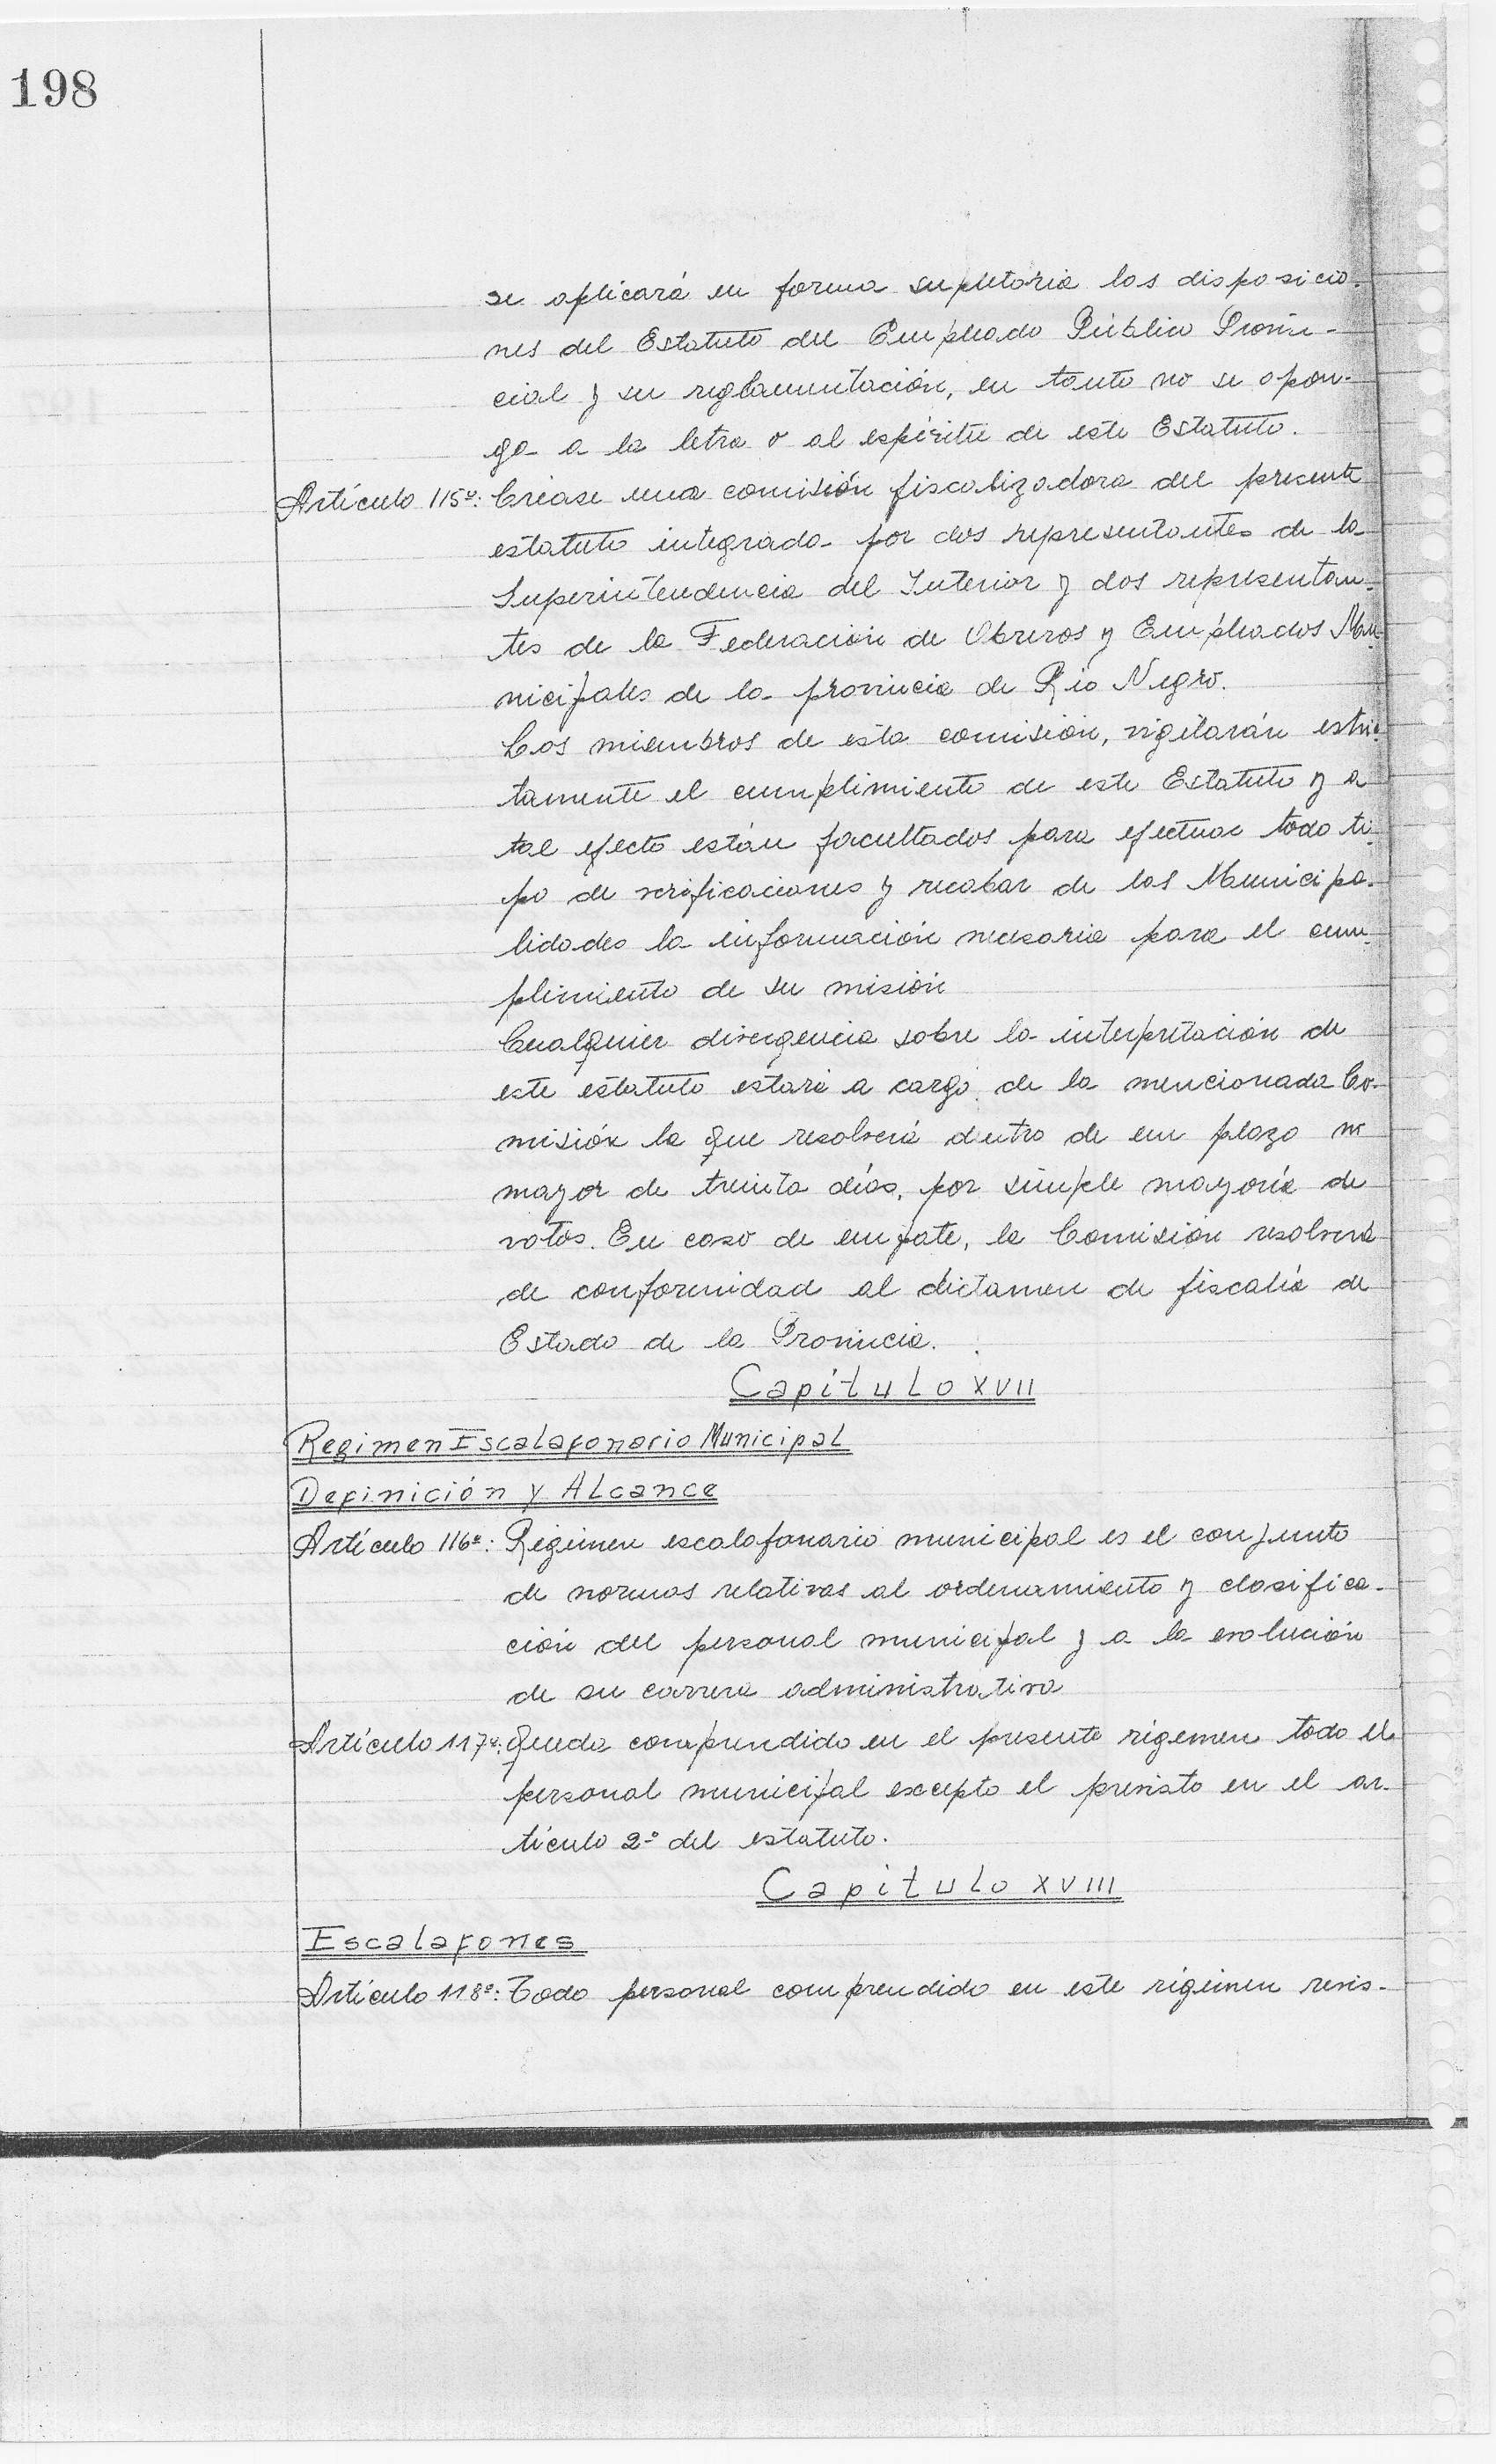 198
se aplicará en forma supletoria las disposicio-
nes del Estatuto del Empleado Público Provin-
cial y su reglamentación, en tanto no se opon-
ga a la letra o al espíritu de este Estatuto.
Artículo 115º: Créase una comisión fiscalizadora del presente
estatuto integrada por dos representantes de la
Superintendencia del Interior y dos representan-
tes de la Federación de Obreros y Empleados Mu-
nicipales de la provincia de Río Negro.
Los miembros de esta comisión, vigilarán estric-
tamente el cumplimiento de este Estatuto y a
tal efecto están facultados para efectuar todo ti-
po de verificaciones y recabar de las Municipa-
lidades la información necesaria para el cum-
plimiento de su misión
Cualquier divergencia sobre la interpretación de
este estatuto estará a cargo de la mencionada Co-
misión la que resolverá dentro de un plazo no
mayor de treinta días, por simple mayoría de
votos. En caso de empate, la Comisión resolverá
de conformidad al dictamen de fiscalía de
Estado de la Provincia.
Capítulo XVII
Regimen Escalafonario Municipal
Definición y Alcance
Artículo 116º: Régimen escalafonario municipal es el conjunto
de normas relativas al ordenamiento y clasifica-
ción del personal municipal y a la evolución
de su carrera administrativa
Artículo 117º: Queda comprendido en el presente régimen todo el
personal municipal excepto el previsto en el ar-
tículo 2º del estatuto.
Capítulo XVIII
Escalafones
Artículo 118º: Todo personal comprendido en este régimen revis-